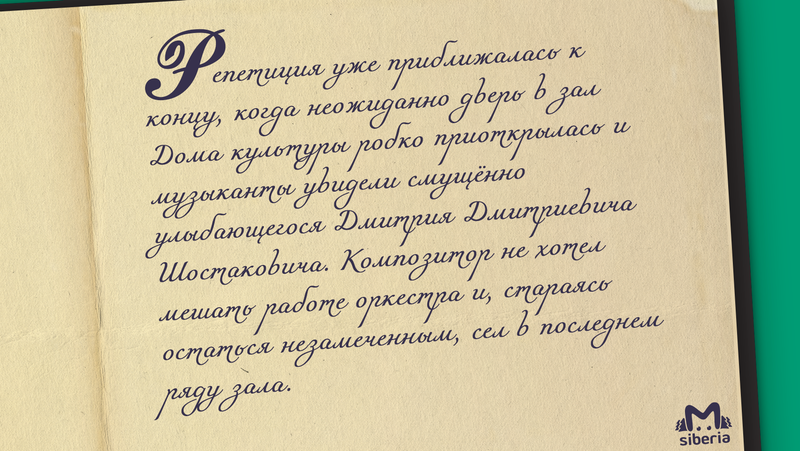 Репетиция уже приближалась к
концу, когда неожиданно дверь в зал
Дома культуры робко приоткрылась и
музыканты увидели смущённо
улыбающегося Дмитрия Дмитриевича
Шостаковича. Композитор не хотел
мешать работе оркестра и, стараясь
остаться незамеченным, сел в последнем
ряду зала.
siberia